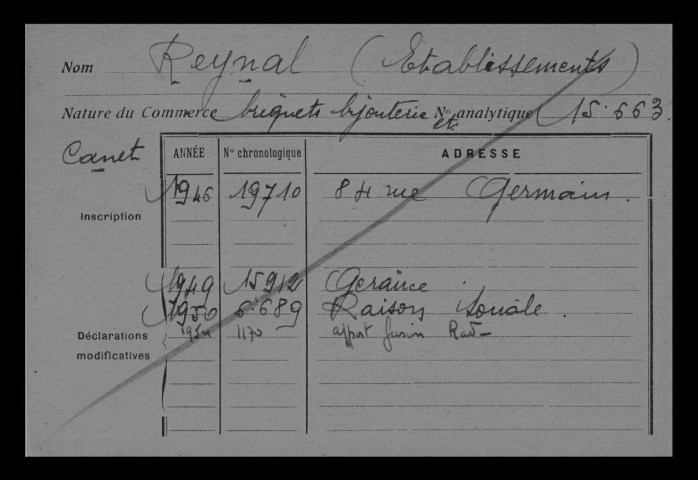 Nom Reynal (Etablissements)
Nature du Commerce briquets bijouterie etc N° analytique 15.663.
Canet ANNÉE N° chronologique ADRESSE
Inscription 1946 19710 84 rue Germain.
1949 15912 Gérance.
1950 6.689 Raison Sociale.
Déclarations modificatives 1954 1170 apport fusion Rad-